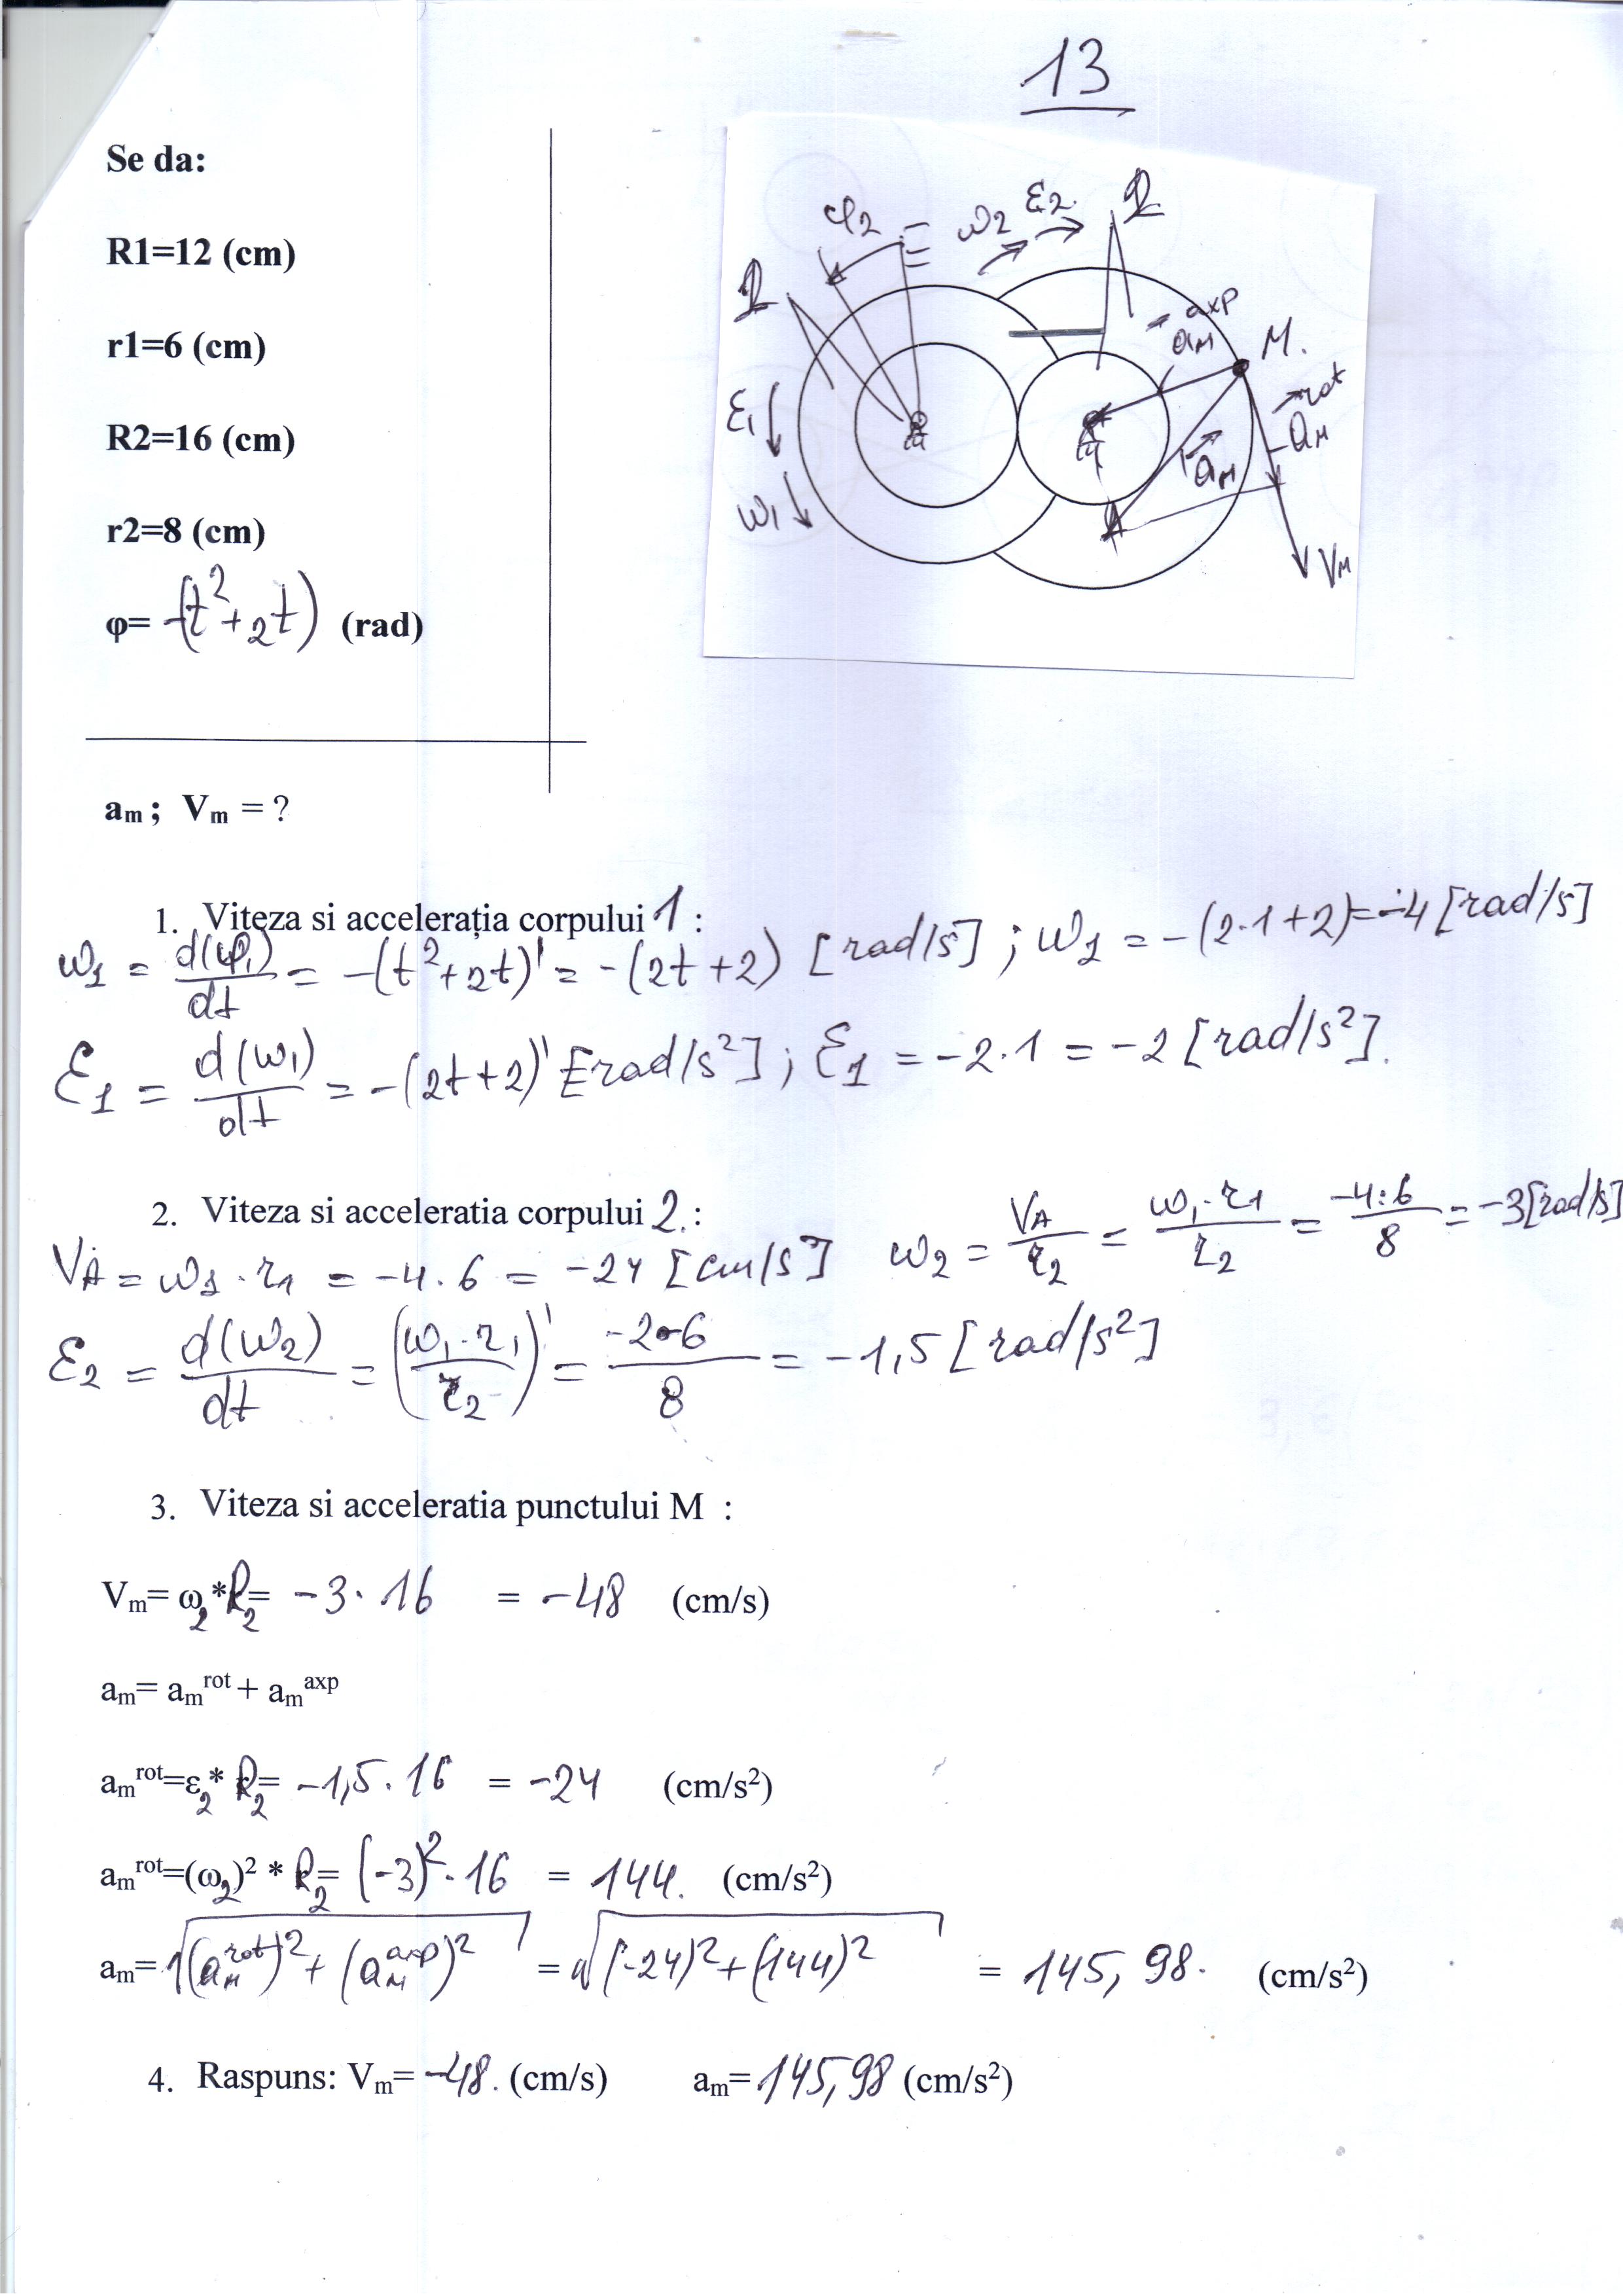 13
Se da:
R1=12 (cm)
r1=6 (cm)
R2=16 (cm)
r2=8 (cm)
φ= -(t²+2t) (rad)
φ2 ω2 ε2 2
1
ε1
ω1
aM axp
M.
aM rot
aM
VM
am ; Vm = ?
1. Viteza si accelerația corpului 1 :
ω1 = d(φ1)/dt = -(t²+2t)' = -(2t+2) [rad/s] ; ω1 = -(2·1+2)=-4 [rad/s]
ε1 = d(ω1)/dt = -(2t+2)' [rad/s²] ; ε1 = -2·1 = -2 [rad/s²].
2. Viteza si acceleratia corpului 2.:
VA = ω1·r1 = -4·6 = -24 [cm/s] ω2 = VA/r2 = ω1·r1/r2 = -4·6/8 = -3[rad/s]
ε2 = d(ω2)/dt = (ω1·r1/r2)' = -2·6/8 = -1,5 [rad/s²]
3. Viteza si acceleratia punctului M :
Vm= ω2*R2= -3·16 = -48 (cm/s)
am= am^rot + am^axp
am^rot=ε2* R2= -1,5·16 = -24 (cm/s²)
am^rot=(ω2)² * R2= (-3)²·16 = 144. (cm/s²)
am= √(aM^rot)²+(aM^axp)² = √(-24)²+(144)² = 145,98. (cm/s²)
4. Raspuns: Vm= -48. (cm/s) am= 145,98 (cm/s²)